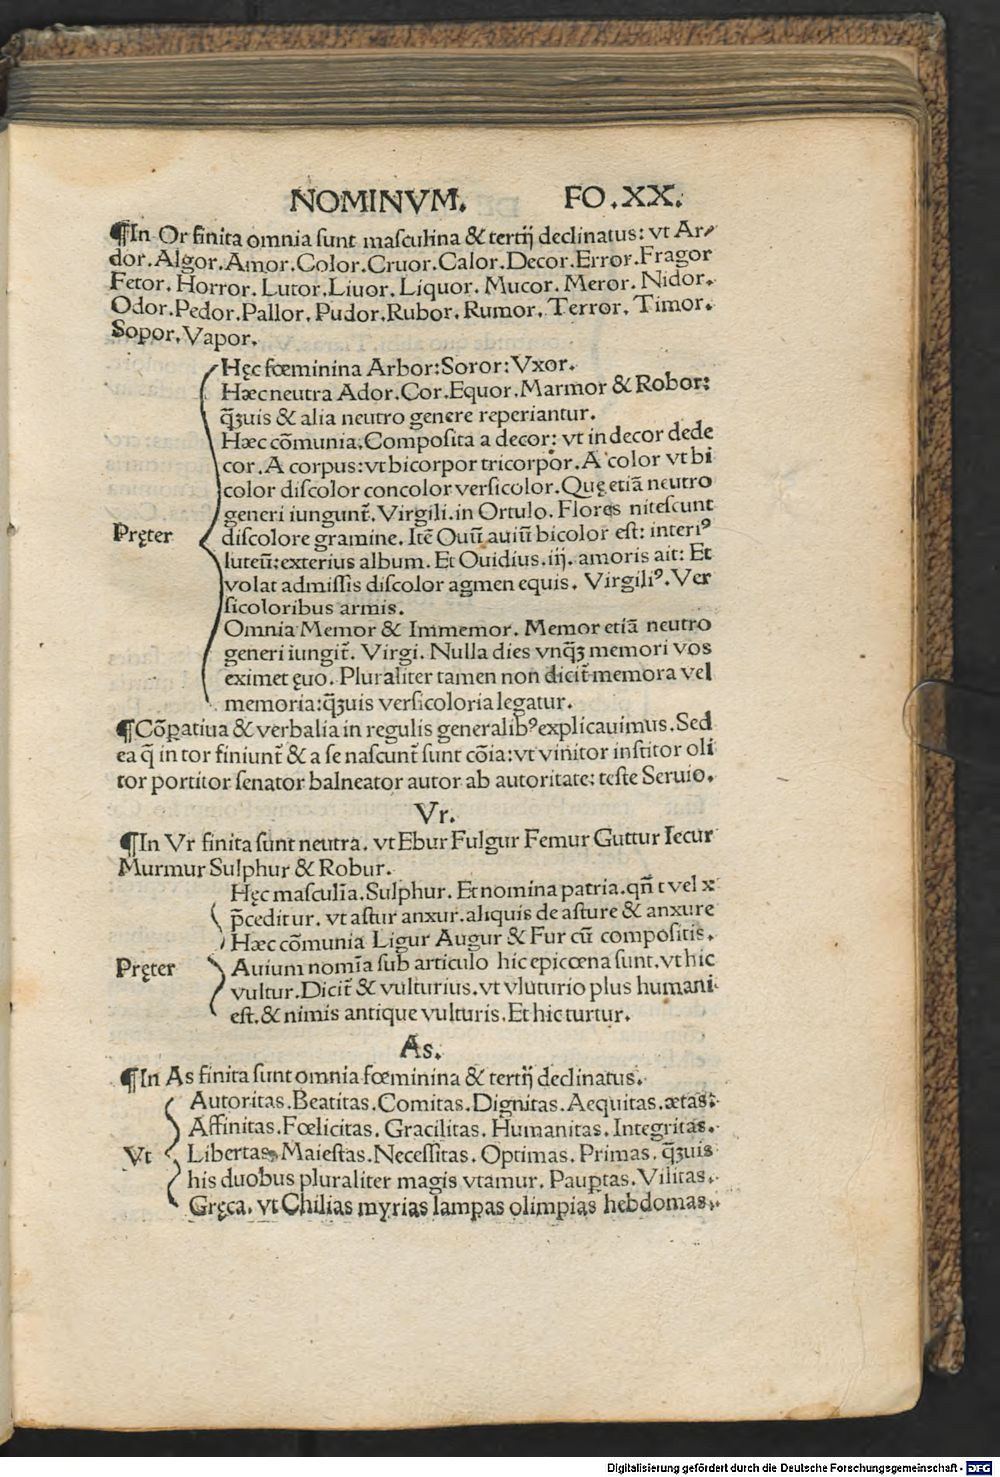 NOMINVM. FO.XX.
¶In Or finita omnia ſunt maſculina & tertij declinatus: vt Ar⸗
dor.Algor.Amor.Color.Cruor.Calor.Decor.Error.Fragor
Fetor. Horror. Lutor.Liuor. Liquor. Mucor. Meror. Nidor.
Odor.Pedor.Pallor. Pudor.Rubor. Rumor. Terror. Timor.
Sopor.Vapor.
Hęc fœminina Arbor:Soror:Vxor.
Hæc neutra Ador.Cor.Equor.Marmor & Robor:
q̃ꝫuis & alia neutro genere reperiantur.
Hæc cõmunia.Compoſita a decor: vt indecor dede
cor.A corpus:vt bicorpor tricorpor.A color vt bi
color diſcolor concolor verſicolor.Quę etiã neutro
generi iungunt̃. Virgili.in Ortulo. Flores niteſcunt
Pręter
diſcolore gramine. Itẽ Ouũ auiũ bicolor eſt: interiꝰ
luteũ:exterius album. Et Ouidius.iij. amoris ait: Et
volat admiſſis diſcolor agmen equis. Virgiliꝰ.Ver
ſicoloribus armis.
Omnia Memor & Immemor. Memor etiã neutro
generi iungit̃. Virgi. Nulla dies vnq̃ꝫ memori vos
eximet ęuo. Pluraliter tamen non dicit̃ memora vel
memoria:q̃ꝫuis verſicoloria legatur.
¶Cõꝑatiua & verbalia in regulis generalibꝰ explicauimus.Sed
ea q̃ in tor finiunt̃ & a ſe naſcunt̃ ſunt cõia:vt vinitor inſtitor oli
tor portitor ſenator balneator autor ab autoritate: teſte Seruio.
Vr.
¶In Vr finita ſunt neutra. vt Ebur Fulgur Femur Guttur Iecur
Murmur Sulphur & Robur.
Hęc maſculĩa.Sulphur. Et nomina patria.qñ t vel x
p̃ceditur. vt aſtur anxur.aliquis de aſture & anxure
Hæc cõmunia Ligur Augur & Fur cũ compoſitis.
Pręter
Auium nomĩa ſub articulo hic epicœna ſunt.vt hic
vultur.Dicit̃ & vulturius.vt vluturio plus humani
eſt.& nimis antique vulturis.Et hic turtur.
As.
¶In As finita ſunt omnia fœminina & tertij declinatus.
Autoritas.Beatitas.Comitas.Dignitas.Aequitas.ætas:
Affinitas.Fœlicitas. Gracilitas. Humanitas. Integritas.
Vt
Libertas. Maieſtas.Neceſſitas. Optimas. Primas. q̃ꝫuis
his duobus pluraliter magis vtamur. Pauꝑtas. Vilitas.
Gręca. vt Chilias myrias lampas olimpias hebdomas.
Digitalisierung gefördert durch die Deutsche Forschungsgemeinschaft - DFG